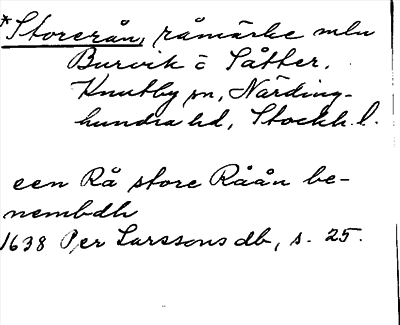 *Storerån, råmärke mln
Burvik o Sätter.
Knutby sn, Närding-
hundra hd, Stockh. l.
een Rå store Råån be-
nembdh
1638 Per Larssons db, s. 25.